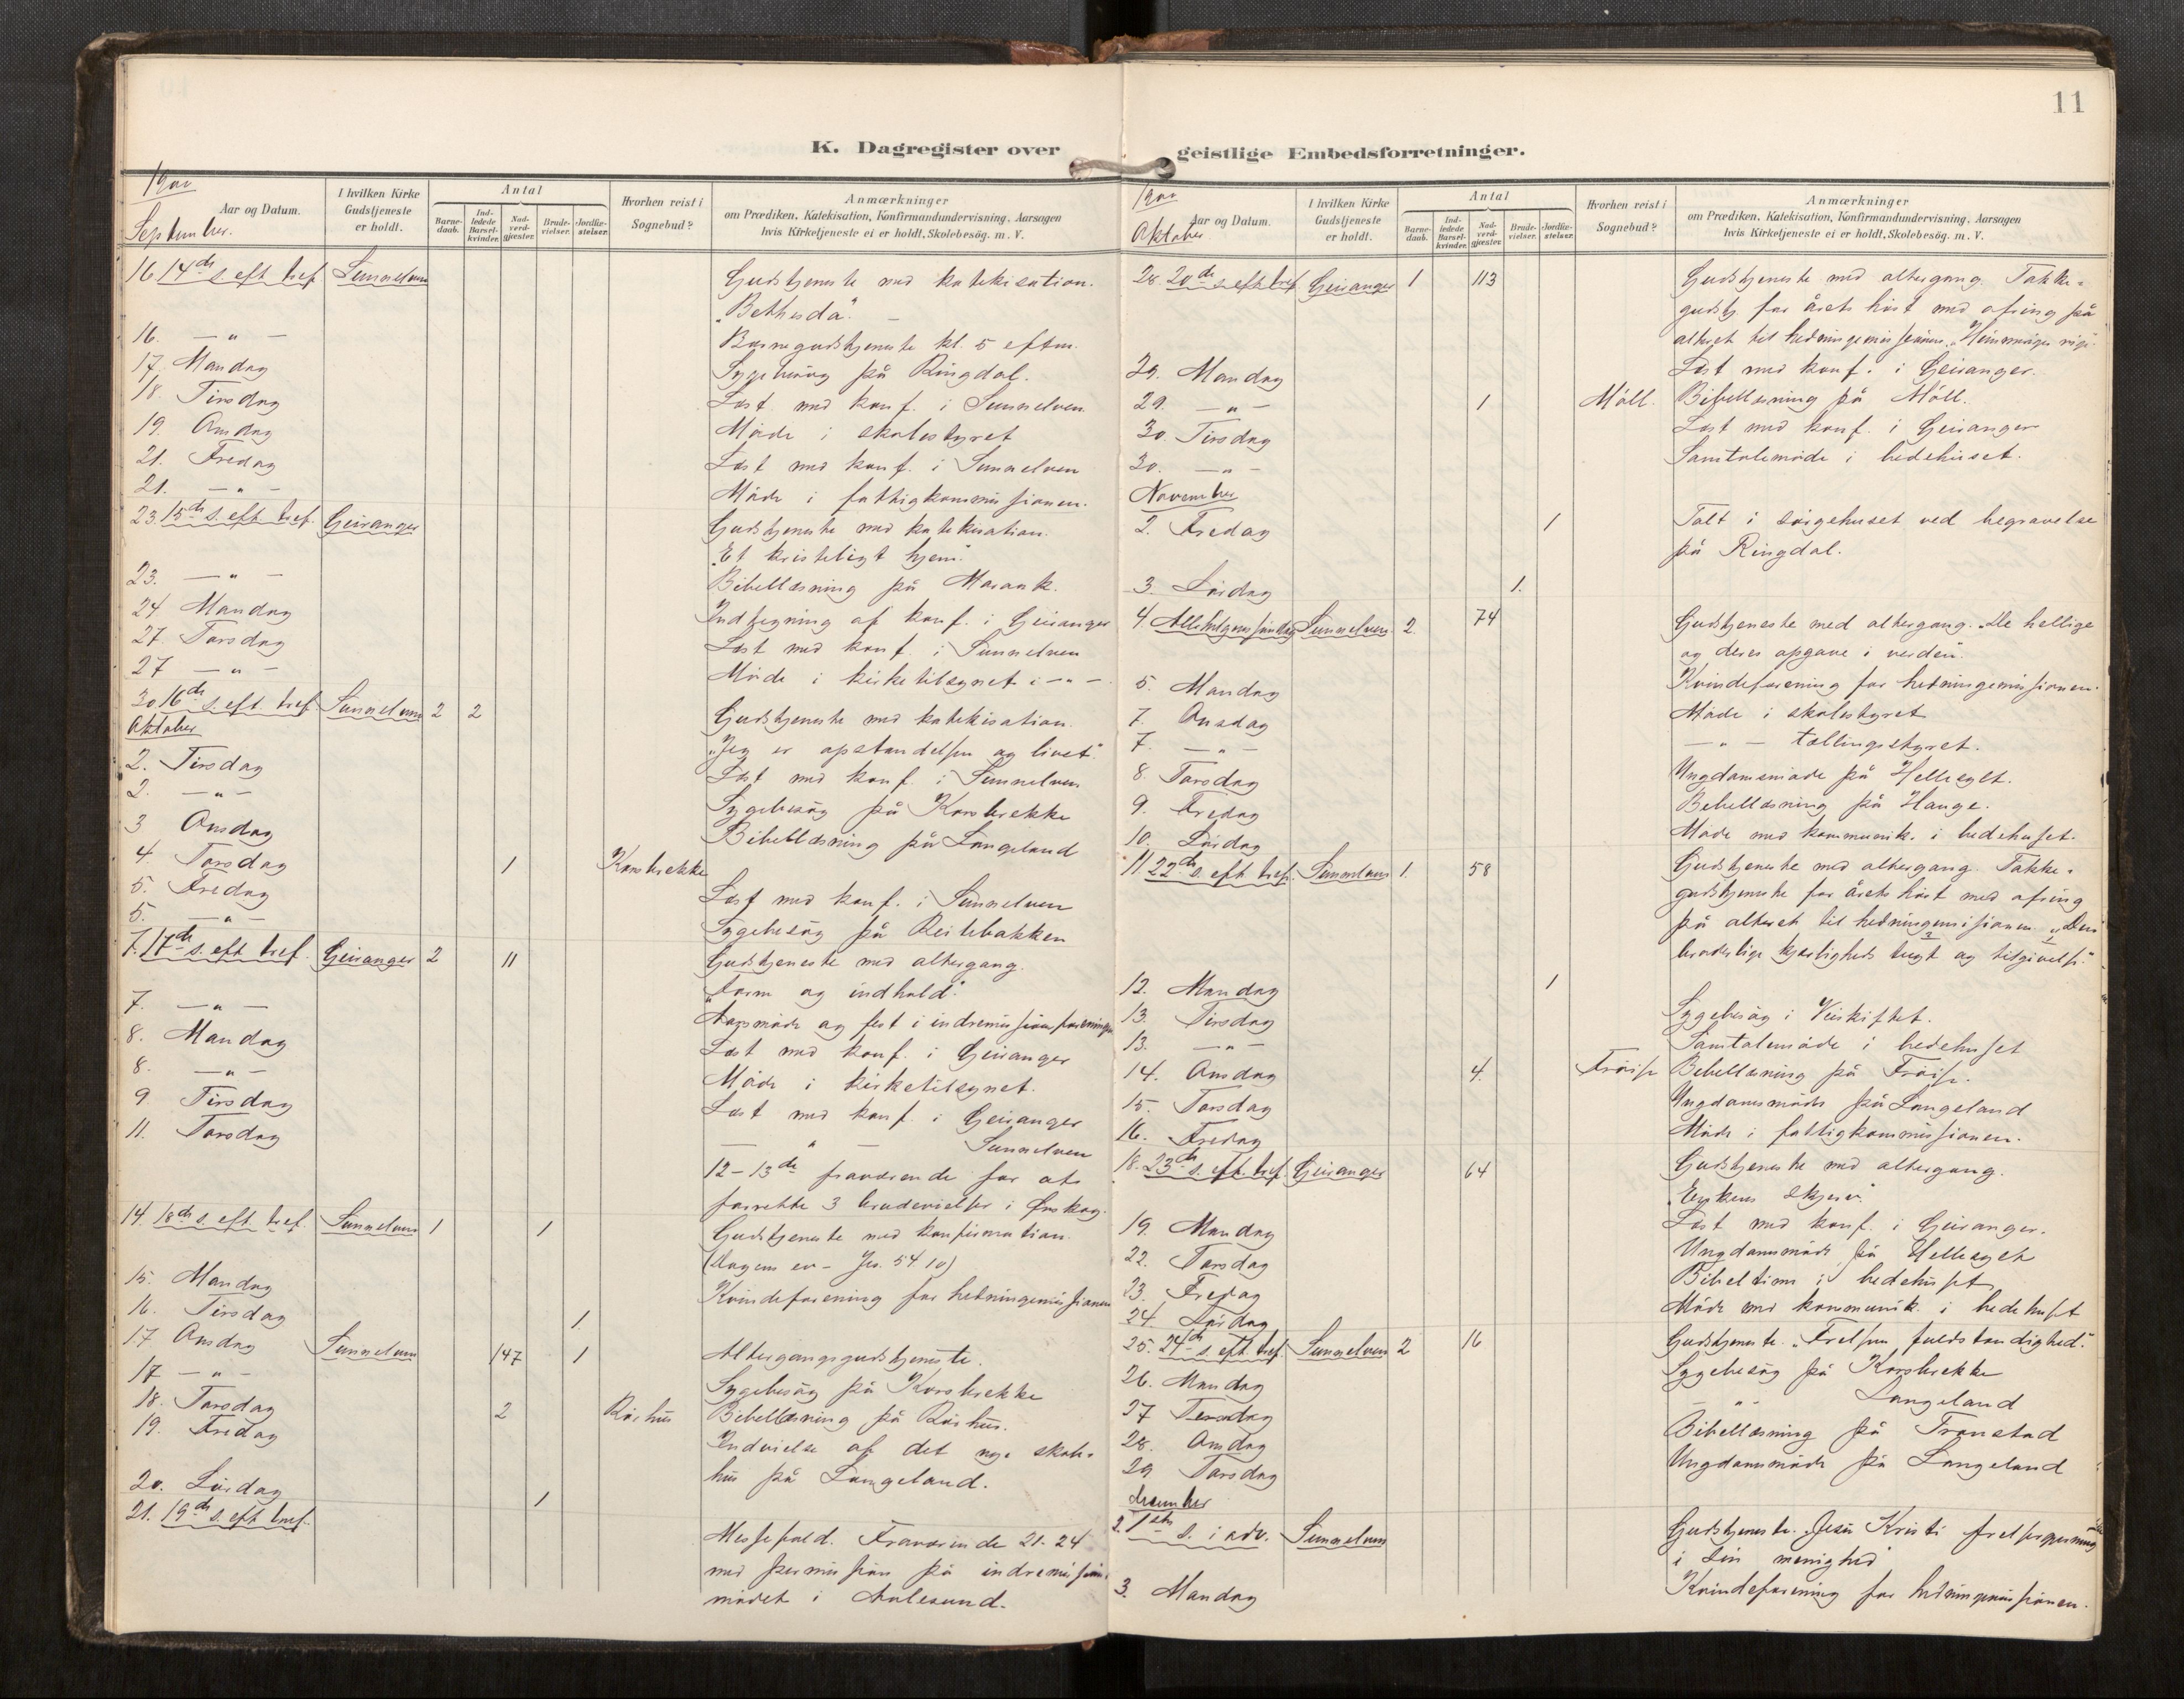 11
K. Dagregister over geistlige Embedsforretninger.
1900
September.
Aar og Datum.
I hvilken Kirke Gudstjeneste er holdt.
Antal
Barnedaab.
Indledede Barselkvinder.
Nadverdgjæster.
Brudevielser.
Jordfæstelser.
Hvorhen reist i Sognebud?
Anmærkninger
om Prædiken, Katekisation, Konfirmandundervisning, Aarsagen
hvis Kirketjeneste ei er holdt, Skolebesøg. m. V.
16 14de s. eft. tref. Sunnelven Gudstjeneste med katekisation.
"Bethesda".
16. — " — Barnegudstjeneste kl. 5 eftm.
17. Mandag Sygebesøg på Ringdal.
18. Tirsdag Læst med konf. i Sunnelven
19. Onsdag Møde i skolestyret
21. Fredag Læst med konf. i Sunnelven
21. — " — Møde i fattigkommissionen.
23. 15de s. eft. tref. Geiranger Gudstjeneste med katekisation.
"Et kristeligt hjem."
23. — " — Bibellæsning på Maraak.
24 Mandag Indtegning af konf. i Geiranger
27. Torsdag Læst med konf. i Sunnelven
27 — " — Møde i kirketilsynet i — " —
30 16de s. eft. tref. Sunnelven 2 2 Gudstjeneste med katekisation.
Oktober
"Jeg er opstandelsen og livet."
2. Tirsdag Læst med konf. i Sunnelven
2. — " — Sygebesøg på Korsbrekke
3 Onsdag Bibellæsning på Langeland
4. Torsdag 1 Korsbrekke
5. Fredag Læst med konf. i Sunnelven
5. — " — Sygebesøg på
7. 17de s. eft. tref. Geiranger 2 11 Gudstjeneste med altergang.
"Form og indhold".
7. — " — Aarsmøde og fest i indremissionsforeningen
8. Mandag Læst med konf. i Geiranger
8. — " — Møde i kirketilsynet.
9 Tirsdag Læst med konf. i Geiranger
11. Torsdag — " — Sunnelven
12-13de fraværende for at
forrette 3 brudevielser i Ørskog.
14. 18de s. eft. tref. Sunnelven 1 1 Gudstjeneste med konfirmation.
(dagens ev — Jes. 54 10)
15. Mandag Kvindeforening for hedningemissionen
16. Tirsdag 1.
17 Onsdag Sunnelven 147 1 Altergangsgudstjeneste.
17 — " — Sygebesøg på Korsbrekke
18. Torsdag 2 Røshus Bibellæsning på Røshus.
19. Fredag Indvielse af det nye skole-
hus på Langeland.
20. Lørdag 1
21. 19de s. eft. tref. Messefald. Fraværende 21-24
med permission på indremissions-
mødet i Aalesund.
1900
Oktober
Aar og Datum.
I hvilken Kirke Gudstjeneste er holdt.
Antal
Barnedaab.
Indledede Barselkvinder.
Nadverdgjæster.
Brudevielser.
Jordfæstelser.
Hvorhen reist i Sognebud?
Anmærkninger
om Prædiken, Katekisation, Konfirmandundervisning, Aarsagen
hvis Kirketjeneste ei er holdt, Skolebesøg. m. V.
28. 20de s. eft. tref. Geiranger 1 113 Gudstjeneste med altergang. Takke-
gudstj. for årets høst med ofring på
alteret til hedningemissionen. "Himmeriges rige."
29. Mandag Læst med konf. i Geiranger.
29. — " — 1 Möll. Bibellæsning på Möll.
30. Tirsdag Læst med konf. i Geiranger
30. — " — Samtalemøde i bedehuset.
November
2. Fredag 1 Talt i sørgehuset ved begravelse
på Ringdal.
3. Lørdag 1.
4 Allehelgens søndag Sunnelven. 2. 74 Gudstjeneste med altergang. "De hellige
og deres opgave i verden".
5. Mandag Kvindeforening for hedningemissionen.
7. Onsdag Møde i skolestyret
7. — " — — " — tællingstyret.
8. Torsdag Ungdomsmøde på Hellesylt.
9. Fredag Bibellæsning på Hauge.
10. Lørdag Møde med kommunik. i bedehuset.
11 22de s. eft. tref. Sunnelven 1. 58 Gudstjeneste med altergang. Takke-
gudstjeneste for årets høst med ofring
på alteret til hedningemissionen. "Den
broderlige kjærligheds tugt og tilgivelse."
12. Mandag 1
13. Tirsdag Sygebesøg i
13. — " — Samtalemøde i bedehuset
14. Onsdag 4. Frøise Bibellæsning på Frøise.
15. Torsdag Ungdomsmøde på Langeland
16. Fredag Møde i fattigkommissionen.
18. 23de s. eft. tref. Geiranger 64 Gudstjeneste med altergang.
"Enkens skjerv."
19. Mandag Læst med konf. i Geiranger.
22. Torsdag Ungdomsmøde på Hellesylt
23. Fredag Bibeltime i bedehuset
24. Lørdag Møde med kommunik. i bedehuset
25. 24de s. eft. tref. Sunnelven 2 16 Gudstjeneste. "Frelsens fuldstændighed."
26. Mandag Sygebesøg på Korsbrekke
27 Tirsdag — " — Langeland
28. Onsdag Bibellæsning på Tronstad
29 Torsdag Ungdomsmøde på Langeland
December
2. 1ste s. i adv. Sunnelven Gudstjeneste. "Jesu Kristi frelsergjerning
i sin menighed"
3. Mandag Kvindeforening for hedningemissionen.